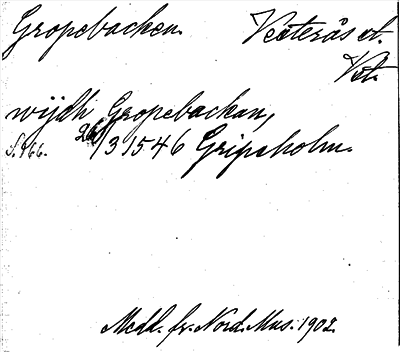 Gropebacken. Västerås st.
Vst.
wijdh Gropebackan,
S. 166. 26/3 1546 Gripsholm.
Medd. fr. Nord. Mus. 1902.